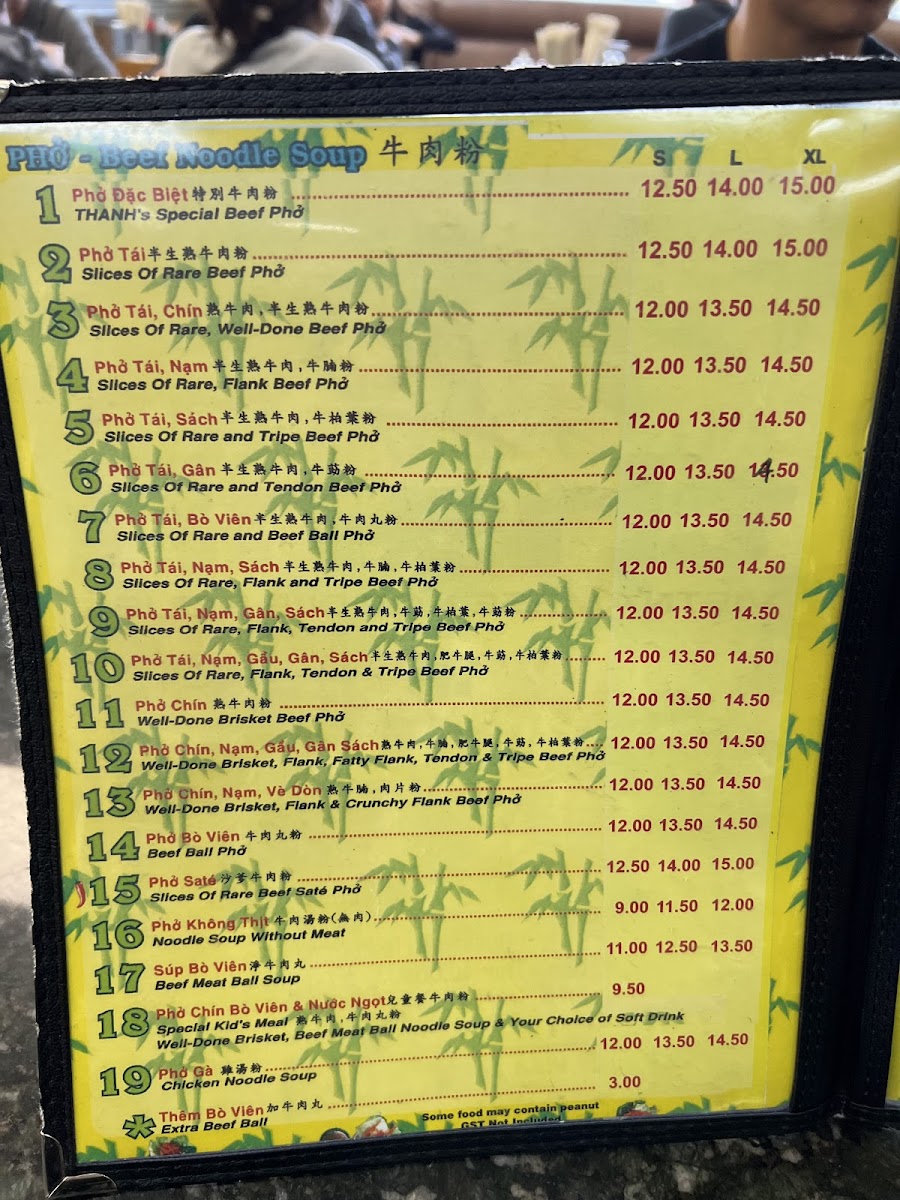 PHỞ - Beef Noodle Soup 牛肉粉 S L XL
1 Phở Đặc Biệt 特別牛肉粉 12.50 14.00 15.00
THANH's Special Beef Phở
2 Phở Tái 半生熟牛肉粉 12.50 14.00 15.00
Slices Of Rare Beef Phở
3 Phở Tái, Chín 熟牛肉,半生熟牛肉粉 12.00 13.50 14.50
Slices Of Rare, Well-Done Beef Phở
4 Phở Tái, Nạm 半生熟牛肉,牛腩粉 12.00 13.50 14.50
Slices Of Rare, Flank Beef Phở
5 Phở Tái, Sách 半生熟牛肉,牛柏葉粉 12.00 13.50 14.50
Slices Of Rare and Tripe Beef Phở
6 Phở Tái, Gân 半生熟牛肉,牛筋粉 12.00 13.50 14.50
Slices Of Rare and Tendon Beef Phở
7 Phở Tái, Bò Viên 半生熟牛肉,牛肉丸粉 12.00 13.50 14.50
Slices Of Rare and Beef Ball Phở
8 Phở Tái, Nạm, Sách 半生熟牛肉,牛腩,牛柏葉粉 12.00 13.50 14.50
Slices Of Rare, Flank and Tripe Beef Phở
9 Phở Tái, Nạm, Gân, Sách 半生熟牛肉,牛筋,牛柏葉,牛筋粉 12.00 13.50 14.50
Slices Of Rare, Flank, Tendon and Tripe Beef Phở
10 Phở Tái, Nạm, Gầu, Gân, Sách 半生熟牛肉,肥牛腿,牛筋,牛柏葉粉 12.00 13.50 14.50
Slices Of Rare, Flank, Tendon & Tripe Beef Phở
11 Phở Chín 熟牛肉粉 12.00 13.50 14.50
Well-Done Brisket Beef Phở
12 Phở Chín, Nạm, Gầu, Gân Sách 熟牛肉,牛腩,肥牛腿,牛筋,牛柏葉粉 12.00 13.50 14.50
Well-Done Brisket, Flank, Fatty Flank, Tendon & Tripe Beef Phở
13 Phở Chín, Nạm, Vè Dòn 熟牛腩,肉片粉 12.00 13.50 14.50
Well-Done Brisket, Flank & Crunchy Flank Beef Phở
14 Phở Bò Viên 牛肉丸粉 12.00 13.50 14.50
Beef Ball Phở
15 Phở Saté 沙爹牛肉粉 12.50 14.00 15.00
Slices Of Rare Beef Saté Phở
16 Phở Không Thịt 牛肉湯粉(無肉) 9.00 11.50 12.00
Noodle Soup Without Meat
17 Súp Bò Viên 淨牛肉丸 11.00 12.50 13.50
Beef Meat Ball Soup
18 Phở Chín Bò Viên & Nước Ngọt 兒童餐牛肉粉 9.50
Special Kid's Meal 熟牛肉,牛肉丸粉
Well-Done Brisket, Beef Meat Ball Noodle Soup & Your Choice of Soft Drink
19 Phở Gà 雞湯粉 12.00 13.50 14.50
Chicken Noodle Soup
* Thêm Bò Viên 加牛肉丸 3.00
Extra Beef Ball
Some food may contain peanut
GST Not Included